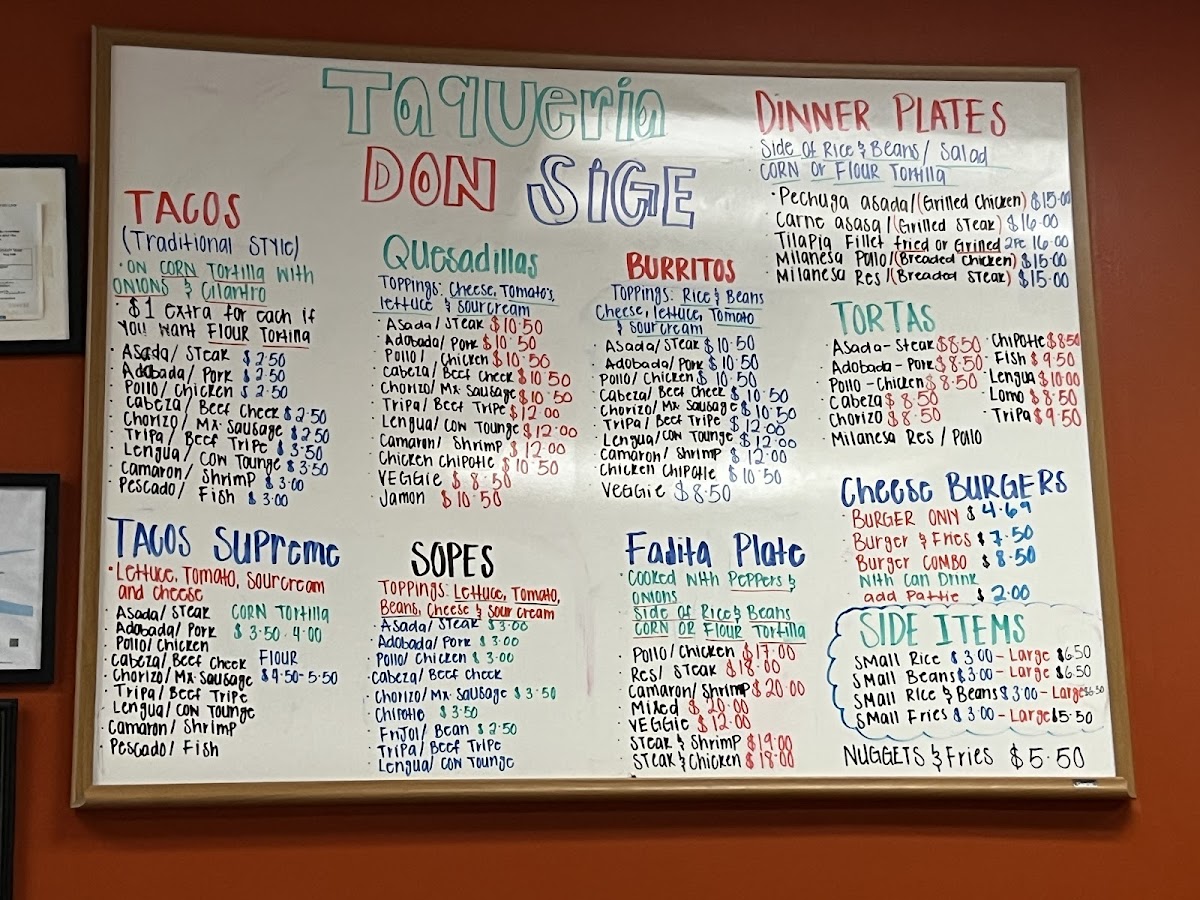 Taqueria
DON SIGE
TACOS
(Traditional STYLE)
· ON CORN Tortilla with
ONIONS & Cilantro
· $1 Extra for each if
YOU WANT FLOUR Tortilla
· Asada/ Steak $2.50
· Adobada/ Pork $2.50
· Pollo/ Chicken $2.50
· Cabeza/ Beef Cheek $2.50
· Chorizo/ Mx. Sausage $2.50
· Tripa/ Beef Tripe $3.50
· Lengua/ Cow Tounge $3.50
· Camaron/ Shrimp $3.00
· Pescado/ Fish $3.00
TACOS Supreme
· Lettuce, Tomato, Sourcream
and Cheese
· Asada/ Steak CORN Tortilla
· Adobada/ Pork $3.50-4.00
· Pollo/ Chicken
· Cabeza/ Beef Cheek FLOUR
· Chorizo/ Mx. Sausage $4.50-5.50
· Tripa/ Beef Tripe
· Lengua/ Cow Tounge
· Camaron/ Shrimp
· Pescado/ Fish
Quesadillas
Toppings: Cheese, Tomato's,
lettuce & sourcream
· Asada/ Steak $10.50
· Adobada/ Pork $10.50
· Pollo/ Chicken $10.50
· Cabeza/ Beef Cheek $10.50
· Chorizo/ Mx. Sausage $10.50
· Tripa/ Beef Tripe $12.00
· Lengua/ Cow Tounge $12.00
· Camaron/ Shrimp $12.00
· Chicken Chipotle $10.50
· VEGGIE $8.50
· Jamon $10.50
SOPES
TOPPINGS: Lettuce, Tomato,
Beans, Cheese & Sour Cream
· Asada/ Steak $3.00
· Adobada/ Pork $3.00
· Pollo/ Chicken $3.00
· Cabeza/ Beef Cheek
· Chorizo/ Mx. Sausage $3.50
· Chipotle $3.50
· Frijol/ Bean $2.50
· Tripa/ Beef Tripe
· Lengua/ Cow Tounge
BURRITOS
Toppings: Rice & Beans
Cheese, lettuce, Tomato
& Sourcream
· Asada/ Steak $10.50
· Adobada/ Pork $10.50
· Pollo/ Chicken $10.50
· Cabeza/ Beef Cheek $10.50
· Chorizo/ Mx. Sausage $10.50
· Tripa/ Beef Tripe $12.00
· Lengua/ Cow Tounge $12.00
· Camaron/ Shrimp $12.00
· Chicken Chipotle $10.50
· VEGGIE $8.50
Fadita Plate
· Cooked with Peppers &
ONIONS
Side of Rice & Beans
CORN OR FLOUR Tortilla
· Pollo/ Chicken $17.00
· Res/ Steak $18.00
· Camaron/ Shrimp $20.00
· Mixed $20.00
· VEGGIE $12.00
· Steak & Shrimp $19.00
· Steak & Chicken $18.00
DINNER PLATES
Side of Rice & Beans/ Salad
CORN Or FLOUR Tortilla
· Pechuga asada/(Grilled Chicken) $15.00
· Carne asasa/(Grilled Steak) $16.00
· Tilapia Fillet fried or Grined 2pc 16.00
· Milanesa Pollo/(Breaded Chicken) $15.00
· Milanesa Res/(Breaded Steak) $15.00
TORTAS
· Asada-Steak $8.50 · Chipotle $8.50
· Adobada-Pork $8.50 · Fish $9.50
· Pollo-Chicken $8.50 · Lengua $10.00
· Cabeza $8.50 · Lomo $8.50
· Chorizo $8.50 · Tripa $9.50
· Milanesa Res / Pollo
Cheese BURGERS
· BURGER ONLY $4.69
· Burger & Fries $7.50
· Burger COMBO $8.50
With Can Drink
add Pattie $2.00
SIDE ITEMS
· Small Rice $3.00 - Large $6.50
· Small Beans $3.00 - Large $6.50
· Small Rice & Beans $3.00 - Large $6.50
· Small Fries $3.00 - Large $5.50
NUGGETS & Fries $5.50